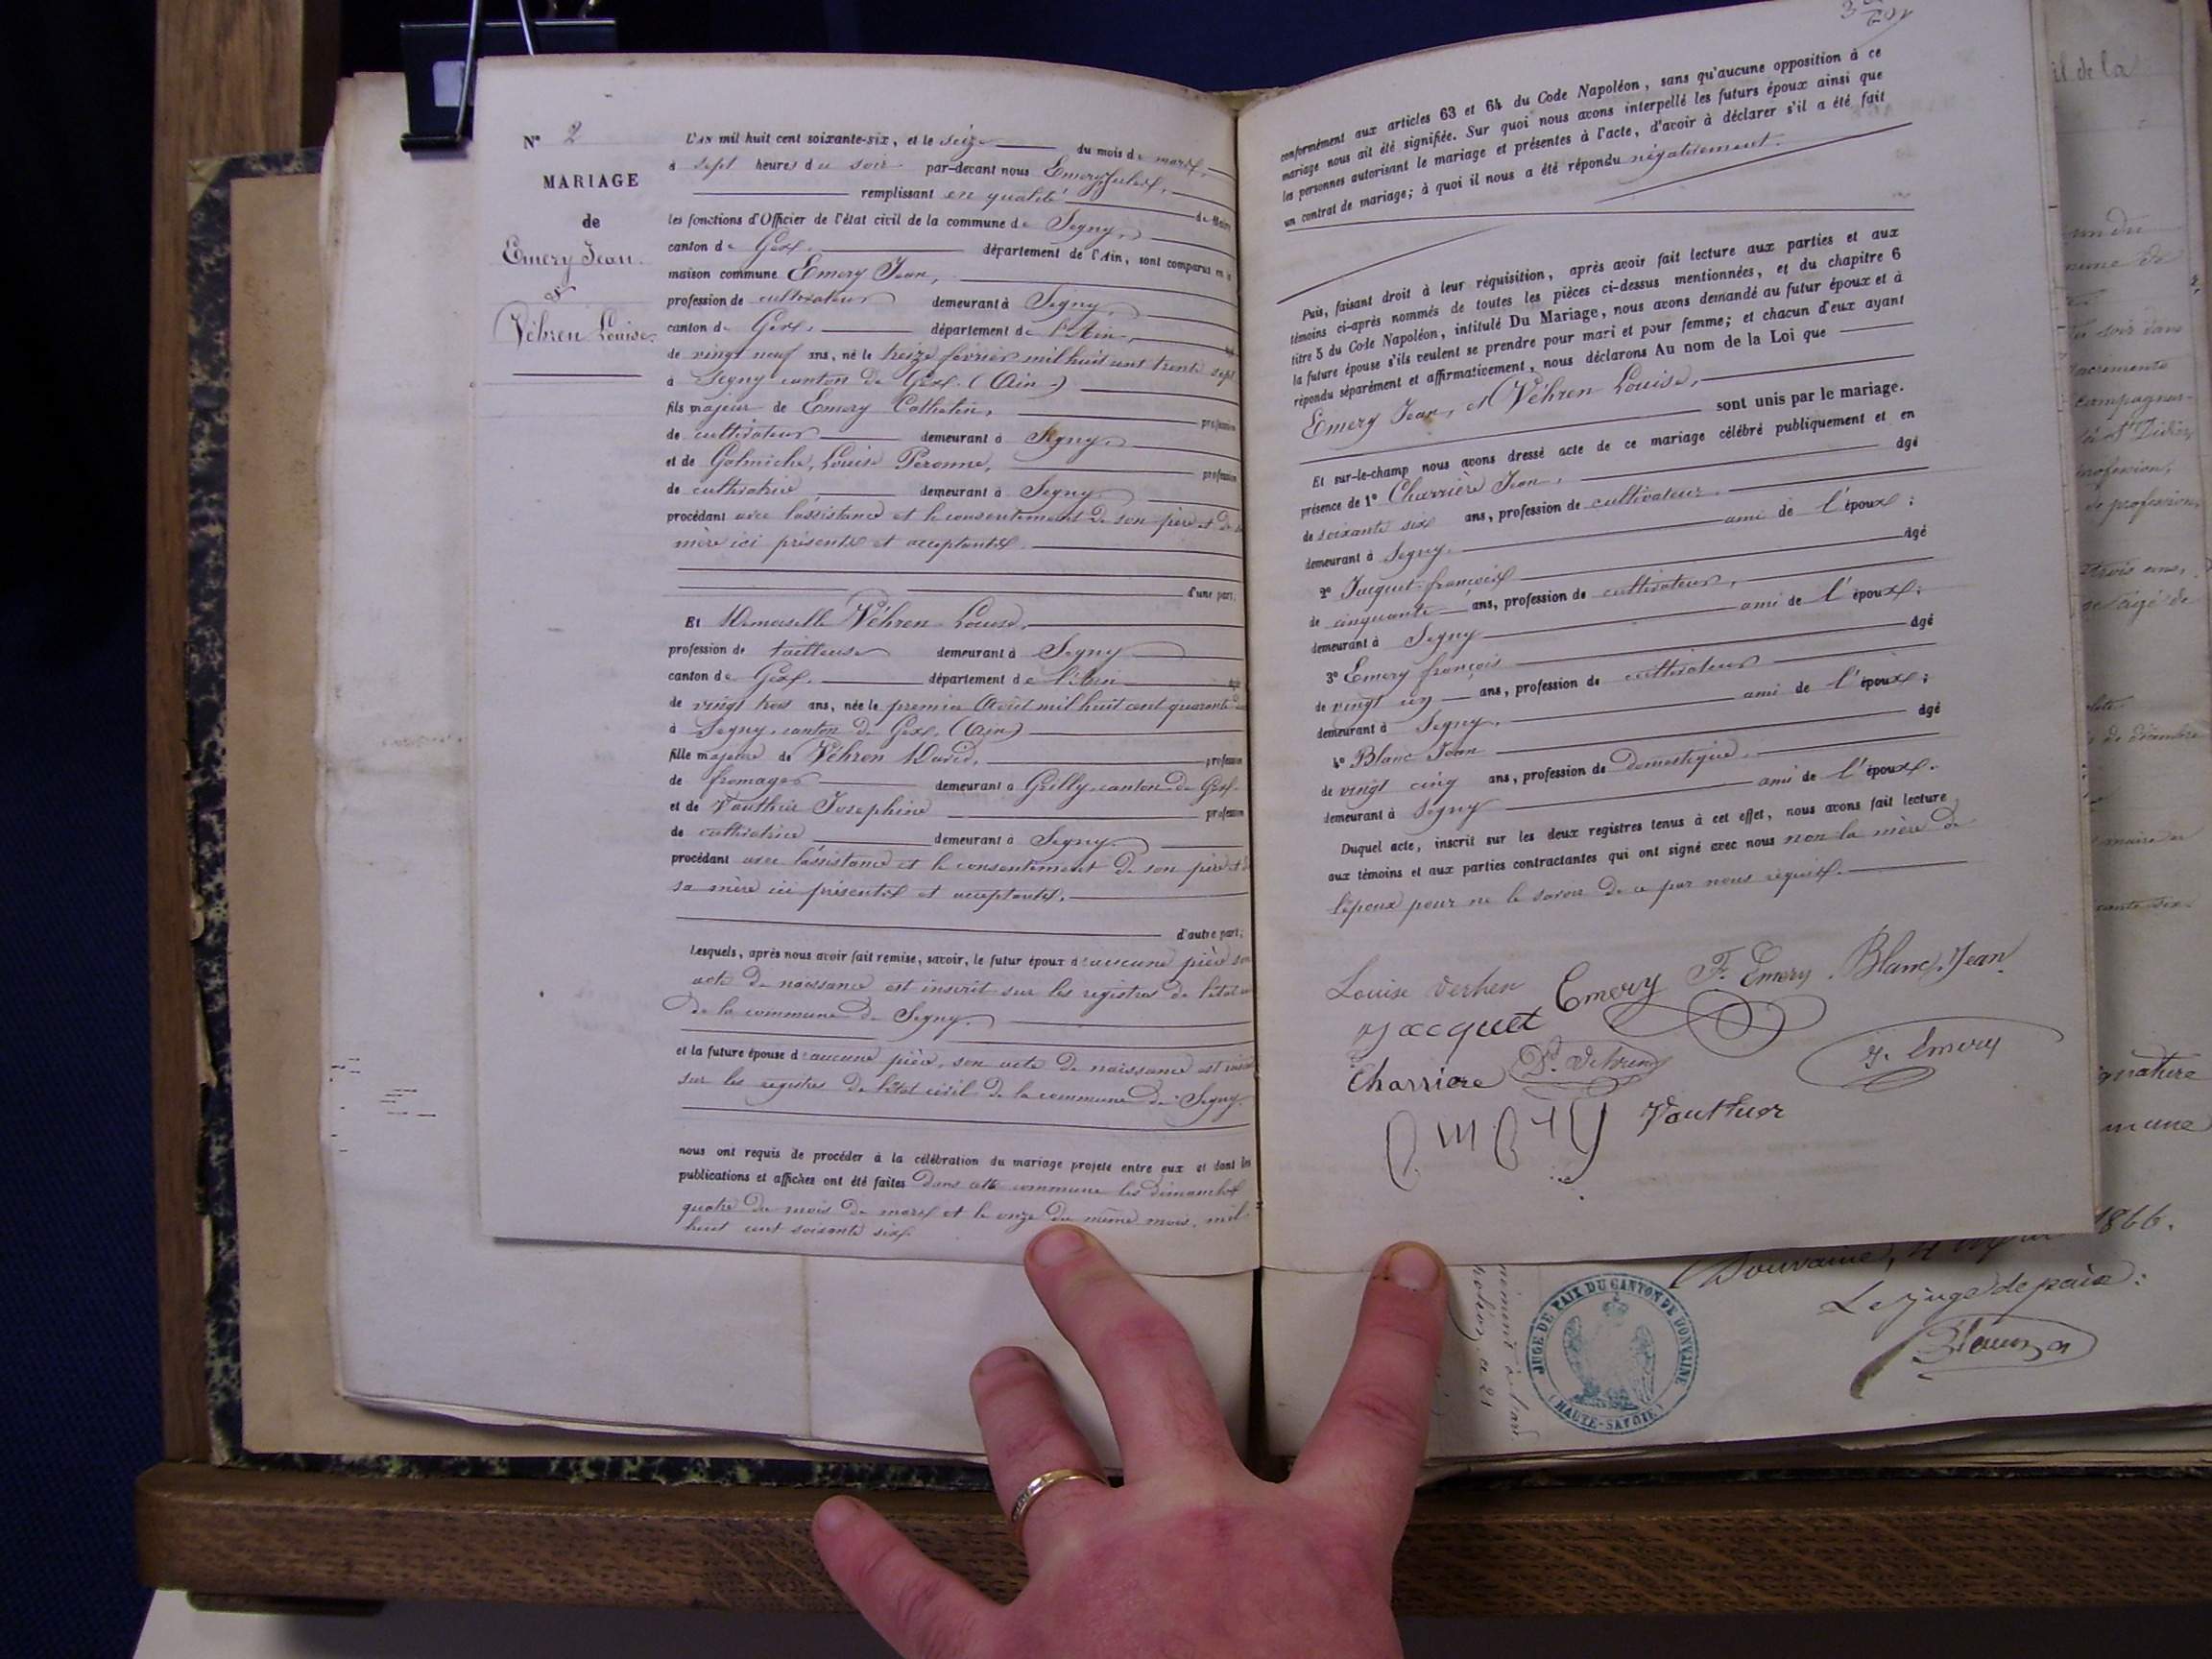 N° 2
MARIAGE
de
Emery Jean
&
Véhren Louise.
L'AN mil huit cent soixante-six, et le seize du mois de mars,
à sept heures du soir par-devant nous Emery Jules,
remplissant en qualité de Maire
les fonctions d'Officier de l'état civil de la commune de Segny,
canton de Gex. département de l'Ain, sont comparus en la
maison commune Emery Jean,
profession de cultivateur demeurant à Segny,
canton de Gex. département de l'Ain,
de vingt neuf ans, né le treize février mil huit cent trente sept
à Segny canton de Gex. (Ain)
fils majeur de Emery Cathelin, profession
de cultivateur demeurant à Segny,
et de Galmiche, Louise Peronne, profession
de cultivatrice, demeurant à Segny.
procédant avec l'assistance et le consentement de son père et de sa
mère ici présents et acceptants.
d'une part.
Et Demoiselle Véhren Louise,
profession de tailleuse demeurant à Segny
canton de Gex. département de l'Ain
de vingt trois ans, née le premier Août mil huit cent quarante
à Segny, canton de Gex. (Ain)
fille majeure de Véhren David, profession
de fromager demeurant à Grilly canton de Gex.
et de Vauthier Josephine profession
de cultivatrice demeurant à Segny.
procédant avec l'assistance et le consentement de son père et de
sa mère ici présents et acceptants.
d'autre part;
Lesquels, après nous avoir fait remise, savoir, le futur époux d'aucune pièce son
acte de naissance est inscrit sur les registres de l'état
de la commune de Segny.
et la future épouse d'aucune pièce, son acte de naissance est inscrit
sur les registres de l'état civil de la commune de Segny.
nous ont requis de procéder à la célébration du mariage projeté entre eux et dont les
publications et affiches ont été faites dans cette commune les dimanches
quatre du mois de mars et le onze du même mois, mil
huit cent soixante six.
conformément aux articles 63 et 64 du Code Napoléon, sans qu'aucune opposition à ce
mariage nous ait été signifiée. Sur quoi nous avons interpellé les futurs époux ainsi que
les personnes autorisant le mariage et présentes à l'acte, d'avoir à déclarer s'il a été fait
un contrat de mariage; à quoi il nous a été répondu négativement.
Puis, faisant droit à leur réquisition, après avoir fait lecture aux parties et aux
témoins ci-après nommés de toutes les pièces ci-dessus mentionnées, et du chapitre 6
titre 5 du Code Napoléon, intitulé Du Mariage, nous avons demandé au futur époux et à
la future épouse s'ils veulent se prendre pour mari et pour femme; et chacun d'eux ayant
répondu séparément et affirmativement, nous déclarons Au nom de la Loi que
Emery Jean, et Véhren Louise,
sont unis par le mariage.
Et sur-le-champ nous avons dressé acte de ce mariage célébré publiquement et en
présence de 1° Charrière Jean, âgé
de soixante six ans, profession de cultivateur.
demeurant à Segny. ami de l'époux;
2° Jacquet françois âgé
de cinquante ans, profession de cultivateur,
demeurant à Segny ami de l'époux;
3° Emery françois âgé
de vingt un ans, profession de cultivateur
demeurant à Segny. ami de l'époux;
4° Blanc Jean âgé
de vingt cinq ans, profession de domestique.
demeurant à Segny ami de l'époux.
Duquel acte, inscrit sur les deux registres tenus à cet effet, nous avons fait lecture
aux témoins et aux parties contractantes qui ont signé avec nous non la mère de
l'époux pour ne le savoir de ce par nous requise.
Louise Verhen Emery F. Emery Blanc Jean
Jacquet
Charriere Dd. Vehren J. Emery
emery Vauthier
il de la
signature
1866.
Le juge de paix:
JUGE DE PAIX DU CANTON DE DOUVAINE
(HAUTE-SAVOIE)